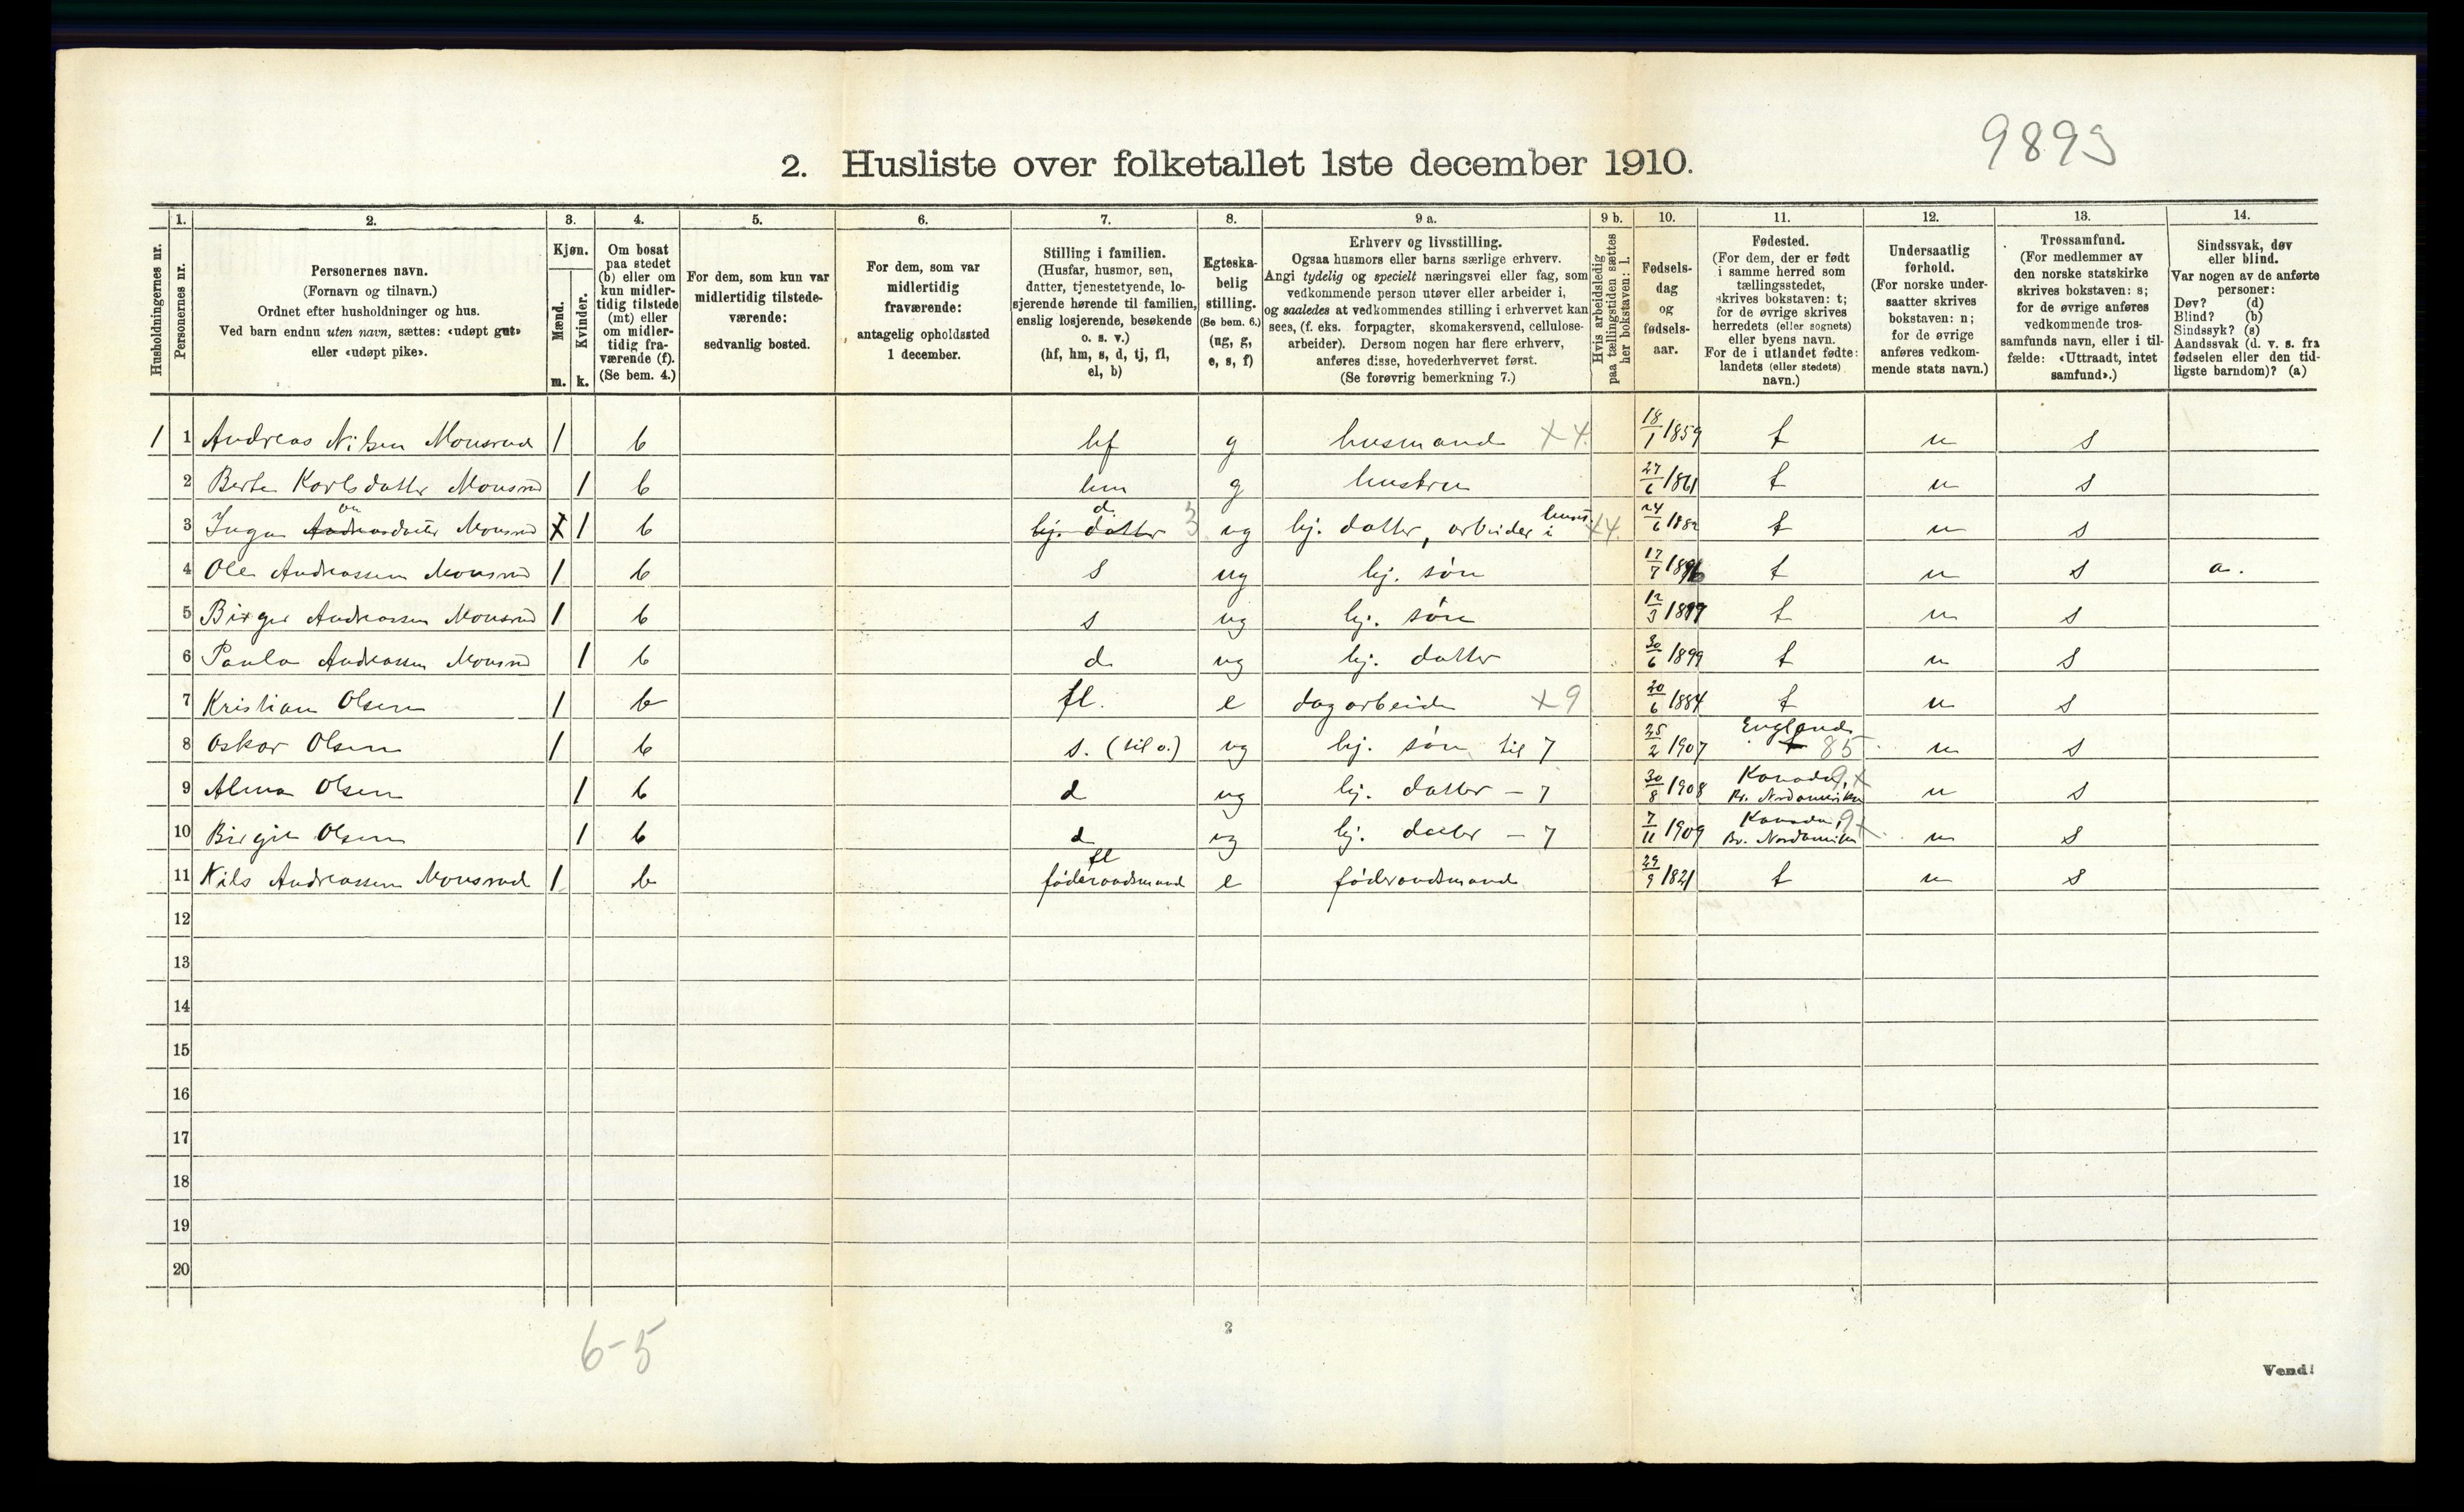 9893
2. Husliste over folketallet 1ste december 1910.
Husholdningernes nr.
1. Personernes nr.
2. Personernes navn.
(Fornavn og tilnavn.)
Ordnet efter husholdninger og hus.
Ved barn endnu uten navn, sættes: «udøpt gut»
eller «udøpt pike».
3. Kjøn.
Mænd. m.
Kvinder. k.
4. Om bosat
paa stedet
(b) eller om
kun midler-
tidig tilstede
(mt) eller
om midler-
tidig fra-
værende (f).
(Se bem. 4.)
5. For dem, som kun var
midlertidig tilstede-
værende:
sedvanlig bosted.
6. For dem, som var
midlertidig
fraværende:
antagelig opholdssted
1 december.
7. Stilling i familien.
(Husfar, husmor, søn,
datter, tjenestetyende, lo-
sjerende hørende til familien,
enslig losjerende, besøkende
o. s. v.)
(hf, hm, s, d, tj, fl,
el, b)
8. Egteska-
belig
stilling.
(Se bem. 6.)
(ug, g,
e, s, f)
9 a. Erhverv og livsstilling.
Ogsaa husmors eller barns særlige erhverv.
Angi tydelig og specielt næringsvei eller fag, som
vedkommende person utøver eller arbeider i,
og saaledes at vedkommendes stilling i erhvervet kan
sees, (f. eks. forpagter, skomakersvend, cellulose-
arbeider). Dersom nogen har flere erhverv,
anføres disse, hovederhvervet først.
(Se forøvrig bemerkning 7.)
9 b. Hvis arbeidsledig
paa tællingstiden sættes
her bokstaven: l.
10. Fødsels-
dag
og
fødsels-
aar.
11. Fødested.
(For dem, der er født
i samme herred som
tællingsstedet,
skrives bokstaven: t;
for de øvrige skrives
herredets (eller sognets)
eller byens navn.
For de i utlandet fødte:
landets (eller stedets)
navn.)
12. Undersaatlig
forhold.
(For norske under-
saatter skrives
bokstaven: n;
for de øvrige
anføres vedkom-
mende stats navn.)
13. Trossamfund.
(For medlemmer av
den norske statskirke
skrives bokstaven: s;
for de øvrige anføres
vedkommende tros-
samfunds navn, eller i til-
fælde: «Uttraadt, intet
samfund».)
14. Sindssvak, døv
eller blind.
Var nogen av de anførte
personer:
Døv? (d)
Blind? (b)
Sindssyk? (s)
Aandssvak (d. v. s. fra
fødselen eller den tid-
ligste barndom)? (a)
1 1 Andreas Nilsen Monsrud 1 b hf g husmand X 4. 18/1 1859 t n s
2 Berte Karlsdatter Monsrud 1 b hm g hustru 27/6 1861 t n s
3 Inga Andreasdatter Monsrud X 1 b hj. datter d. 3 ug hj. datter, arbeider i huset X4. 24/6 1882 t n s
4 Ole Andreassen Monsrud 1 b s ug hj. søn 17/7 1896 t n s a.
5 Birger Andreassen Monsrud 1 b s ug hj. søn 12/3 1897 t n s
6 Paula Andreassen Monsrud 1 b d ug hj. datter 30/6 1899 t n s
7 Kristian Olsen 1 b fl. e dagarbeider X 9 20/6 1884 t n s
8 Oskar Olsen 1 b s. (til o.) ug hj. søn til 7 25/2 1907 England t 85 n s
9 Alma Olsen 1 b d ug hj. datter – 7 30/8 1908 Kanada, 9X Br. Nordamerika n s
10 Birgit Olsen 1 b d ug hj. datter – 7 7/11 1909 Kanada, 9X Br. Nordamerika n s
11 Nils Andreassen Monsrud 1 b fl føderaadsmand e føderaadsmand 29/9 1821 t n s
12
13
14
15
16
17
18
19
20
6-5
2
Vend!